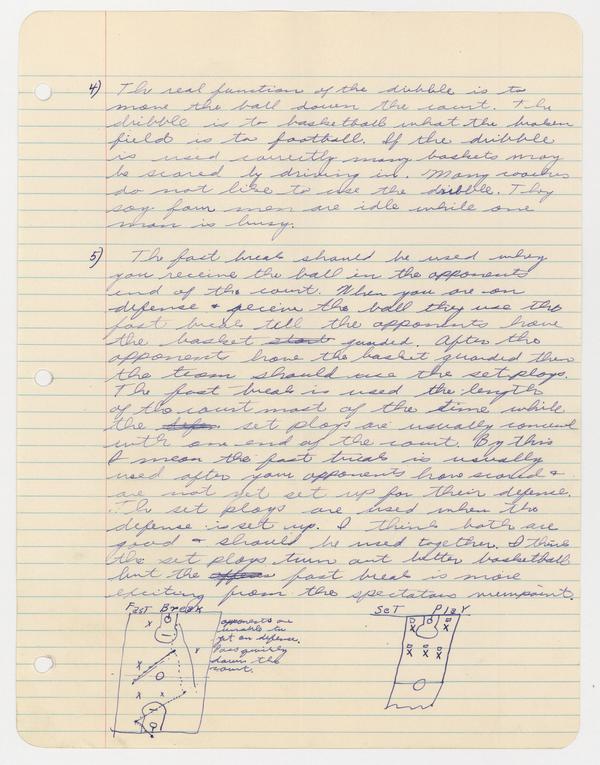 4) The real function of the dribble is to
move the ball down the court. The
dribble is to basketball what the broken
field is to football. If the dribble
is used correctly many baskets may
be scored by driving in. Many coaches
do not like to use the dribble. They
say four men are idle while one
man is busy.
5) The fast break should be used when
you receive the ball in the opponents
end of the court. When you are on
defense & receive the ball they use the
fast break tell the opponents have
the basket guarded. After the
opponent have the basket guarded then
the team should use the set plays.
The fast break is used the length
of the court most of the time while
the set plays are usually
with one end of the court. By this
I mean the fast break is usually
used after your opponents have scored &
are not yet set up for their defense.
The set plays are used when the
defense is set up. I think both are
good & should be used together. I think
the set plays turn out better basketball
but the fast break is more
exciting from the spectators viewpoint.
Fast Break
opponents are
unable to
get on defense.
Pass quickly
down the
court.
Set Play